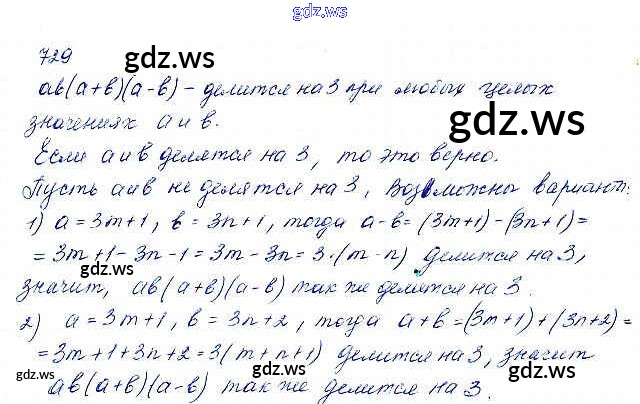 gdz.ws
729
gdz.ws
ab(a+b)(a-b) - делится на 3 при любых целых
gdz.ws
значениях a и b.
Если a и b делятся на 3, то это верно.
Пусть a и b не делятся на 3, Возможны вариант:
1) a = 3m+1, b = 3n+1, тогда a-b = (3m+1) - (3n+1) =
= 3m+1-3n-1 = 3m-3n = 3·(m-n) делится на 3,
gdz.ws gdz.ws
значит, ab(a+b)(a-b) так же делится на 3.
2) a = 3m+1, b = 3n+2, тогда a+b = (3m+1) + (3n+2) =
= 3m+1+3n+2 = 3(m+n+1) делится на 3, значит
gdz.ws gdz.ws gdz.ws
ab(a+b)(a-b) так же делится на 3.